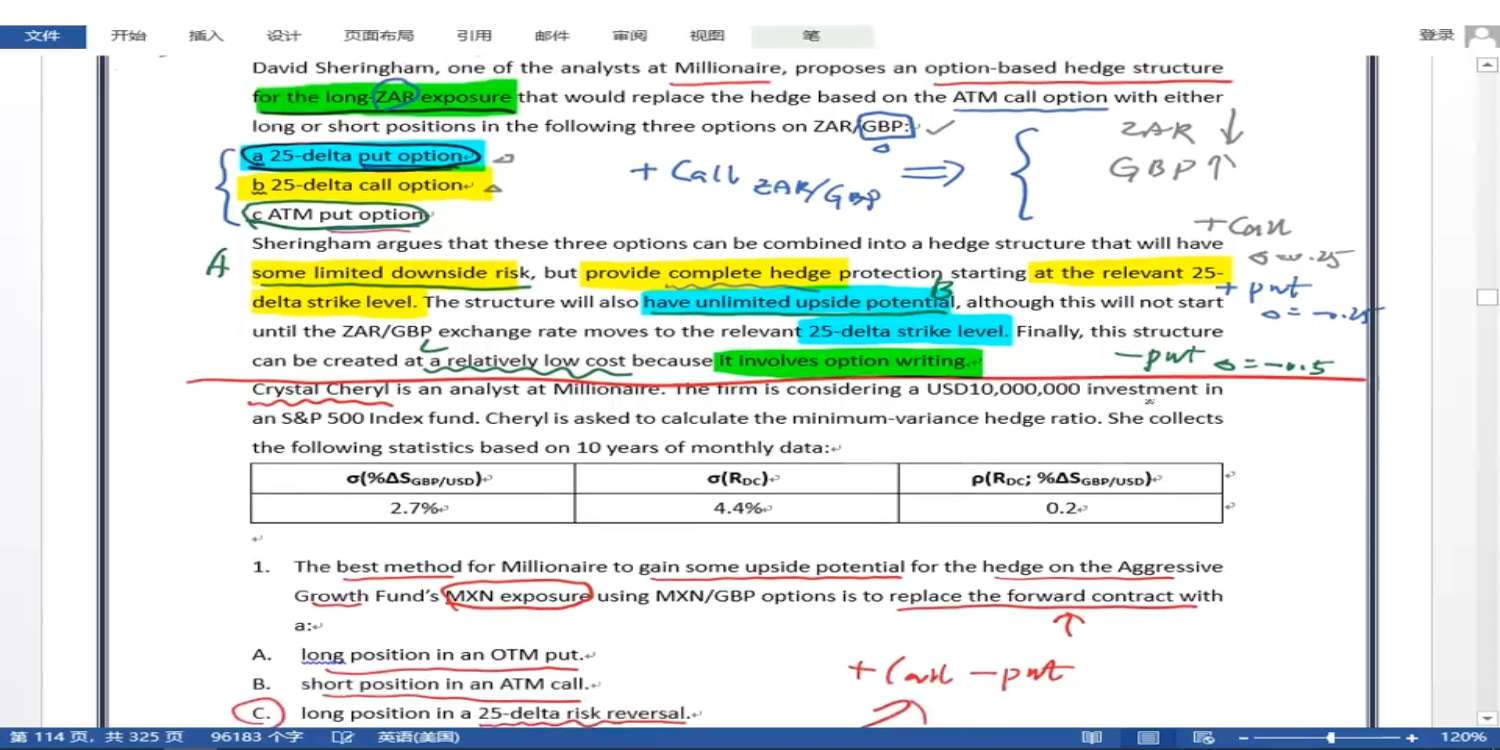 文件 开始 插入 设计 页面布局 引用 邮件 审阅 视图 笔 登录
David Sheringham, one of the analysts at Millionaire, proposes an option-based hedge structure
for the long ZAR exposure that would replace the hedge based on the ATM call option with either
long or short positions in the following three options on ZAR/GBP:
ZAR ↓
a 25-delta put option
+ Call ZAR/GBP ⇒
GBP ↑
b 25-delta call option
c ATM put option
+ Call
Sheringham argues that these three options can be combined into a hedge structure that will have
A
some limited downside risk, but provide complete hedge protection starting at the relevant 25-
B
+ put
delta strike level. The structure will also have unlimited upside potential, although this will not start
until the ZAR/GBP exchange rate moves to the relevant 25-delta strike level. Finally, this structure
can be created at a relatively low cost because it involves option writing.
- put
Crystal Cheryl is an analyst at Millionaire. The firm is considering a USD10,000,000 investment in
an S&P 500 Index fund. Cheryl is asked to calculate the minimum-variance hedge ratio. She collects
the following statistics based on 10 years of monthly data:
σ(%ΔSGBP/USD) σ(RDC) ρ(RDC; %ΔSGBP/USD)
2.7% 4.4% 0.2
1. The best method for Millionaire to gain some upside potential for the hedge on the Aggressive
Growth Fund's MXN exposure using MXN/GBP options is to replace the forward contract with
a:
A. long position in an OTM put.
+ Call - put
B. short position in an ATM call.
C. long position in a 25-delta risk reversal.
第 114 页，共 325 页 96183 个字 英语(美国) 120%